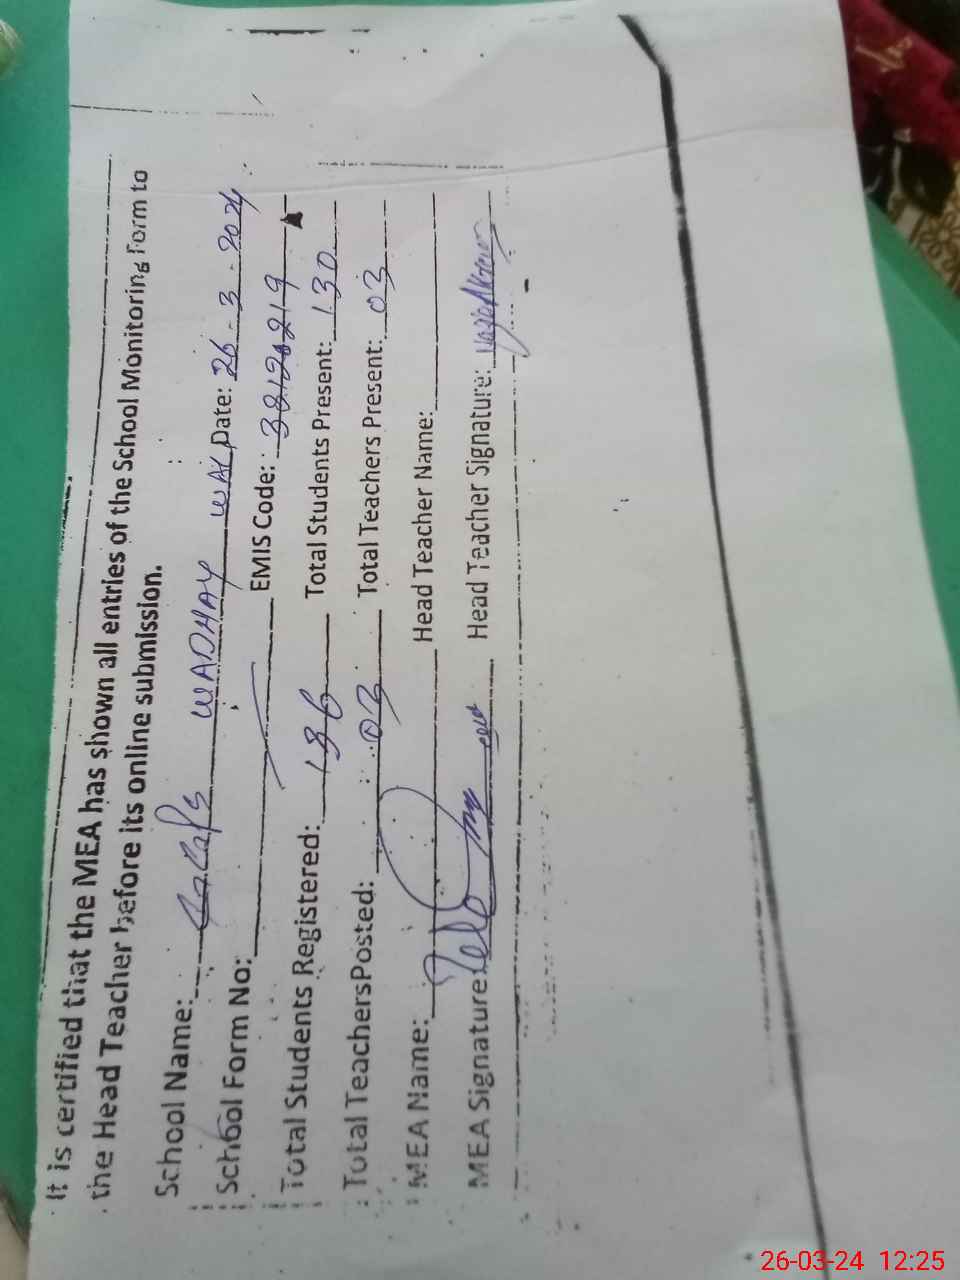 It is certified that the MEA has shown all entries of the School Monitoring Form to
the Head Teacher before its online submission.
School Name: WADHAY WALI Date: 26-3-2024
School Form No: EMIS Code: 38120219
Total Students Registered: 136 Total Students Present: 130
Total Teachers Posted: 03 Total Teachers Present: 03
MEA Name: Head Teacher Name:
MEA Signature: Head Teacher Signature:
26-03-24 12:25